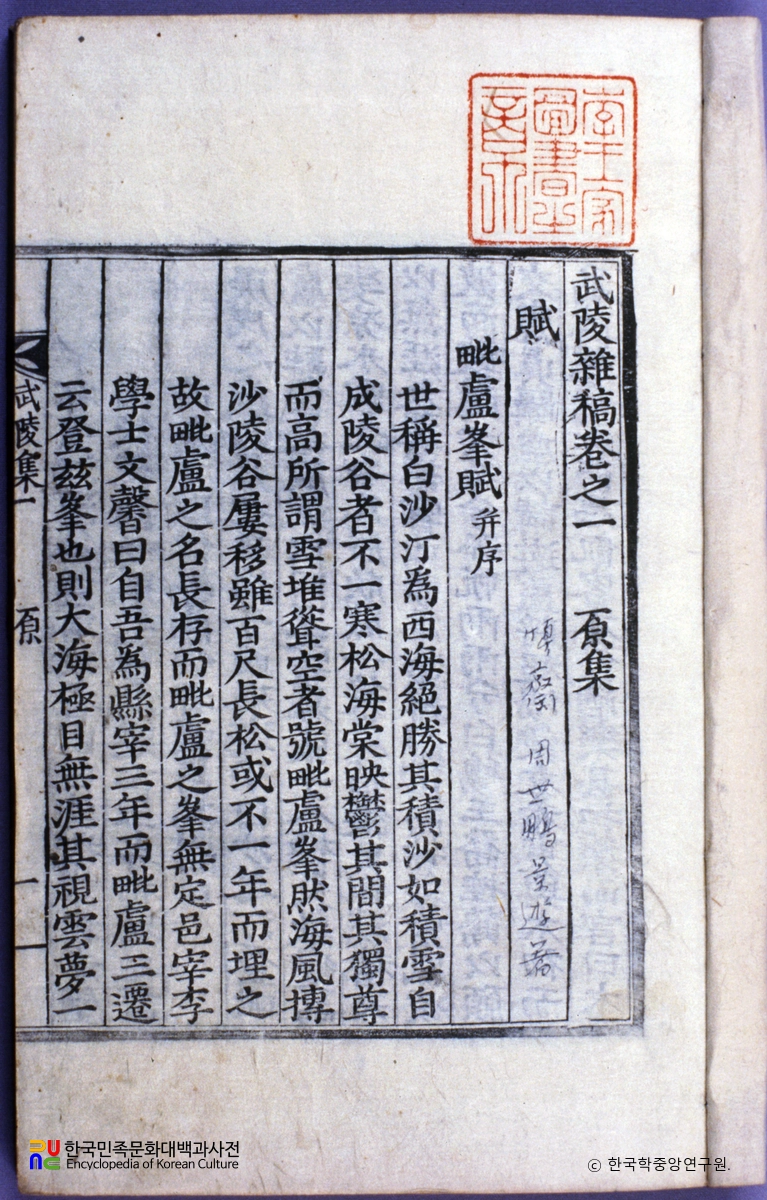 李王家圖書之章
武陵雜稿卷之一 原集
賦
愼齋 周世鵬 景遊 著
毗盧峯賦 并序
世稱白沙汀爲西海絕勝其積沙如積雪自
成陵谷者不一寒松海棠映鬱其間其獨尊
而高所謂雪堆聳空者號毗盧峯然海風摶
沙陵谷屢移雖百尺長松或不一年而埋之
故毗盧之名長存而毗盧之峯無定邑宰李
學士文馨曰自吾爲縣宰三年而毗盧三遷
云登玆峯也則大海極目無涯其視雲夢一
武陵集一 原 一
한국민족문화대백과사전
Encyclopedia of Korean Culture
© 한국학중앙연구원.